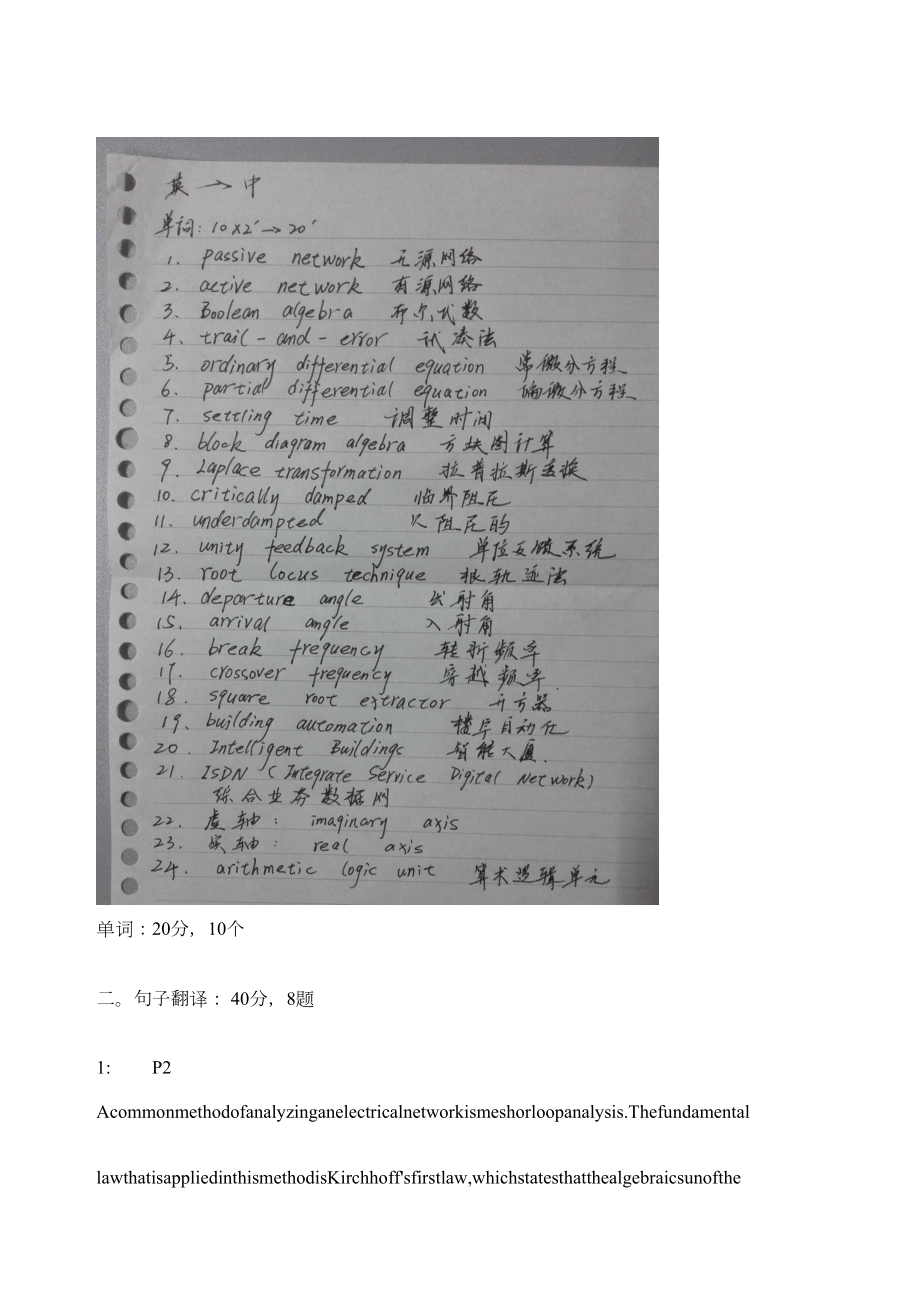 英→中
单词: 10×2′→20′
1. passive network 无源网络
2. active network 有源网络
3. Boolean algebra 布尔代数
4. trail-and-error 试凑法
5. ordinary differential equation 常微分方程
6. partial differential equation 偏微分方程
7. settling time 调整时间
8. block diagram algebra 方块图计算
9. Laplace transformation 拉普拉斯变换
10. critically damped 临界阻尼
11. underdampted 欠阻尼的
12. unity feedback system 单位反馈系统
13. root locus technique 根轨迹法
14. departure angle 出射角
15. arrival angle 入射角
16. break frequency 转折频率
17. crossover frequency 穿越频率
18. square root extractor 开方器
19. building automation 楼宇自动化
20. Intelligent Buildings 智能大厦.
21. ISDN (Integrate Service Digital Network)
综合业务数据网
22. 虚轴: imaginary axis
23. 实轴: real axis
24. arithmetic logic unit 算术逻辑单元
单词：20分，10个
二。句子翻译：40分，8题
1: P2
Acommonmethodofanalyzinganelectricalnetworkismeshorloopanalysis.Thefundamental
lawthatisappliedinthismethodisKirchhoff'sfirstlaw,whichstatesthatthealgebraicsunofthe